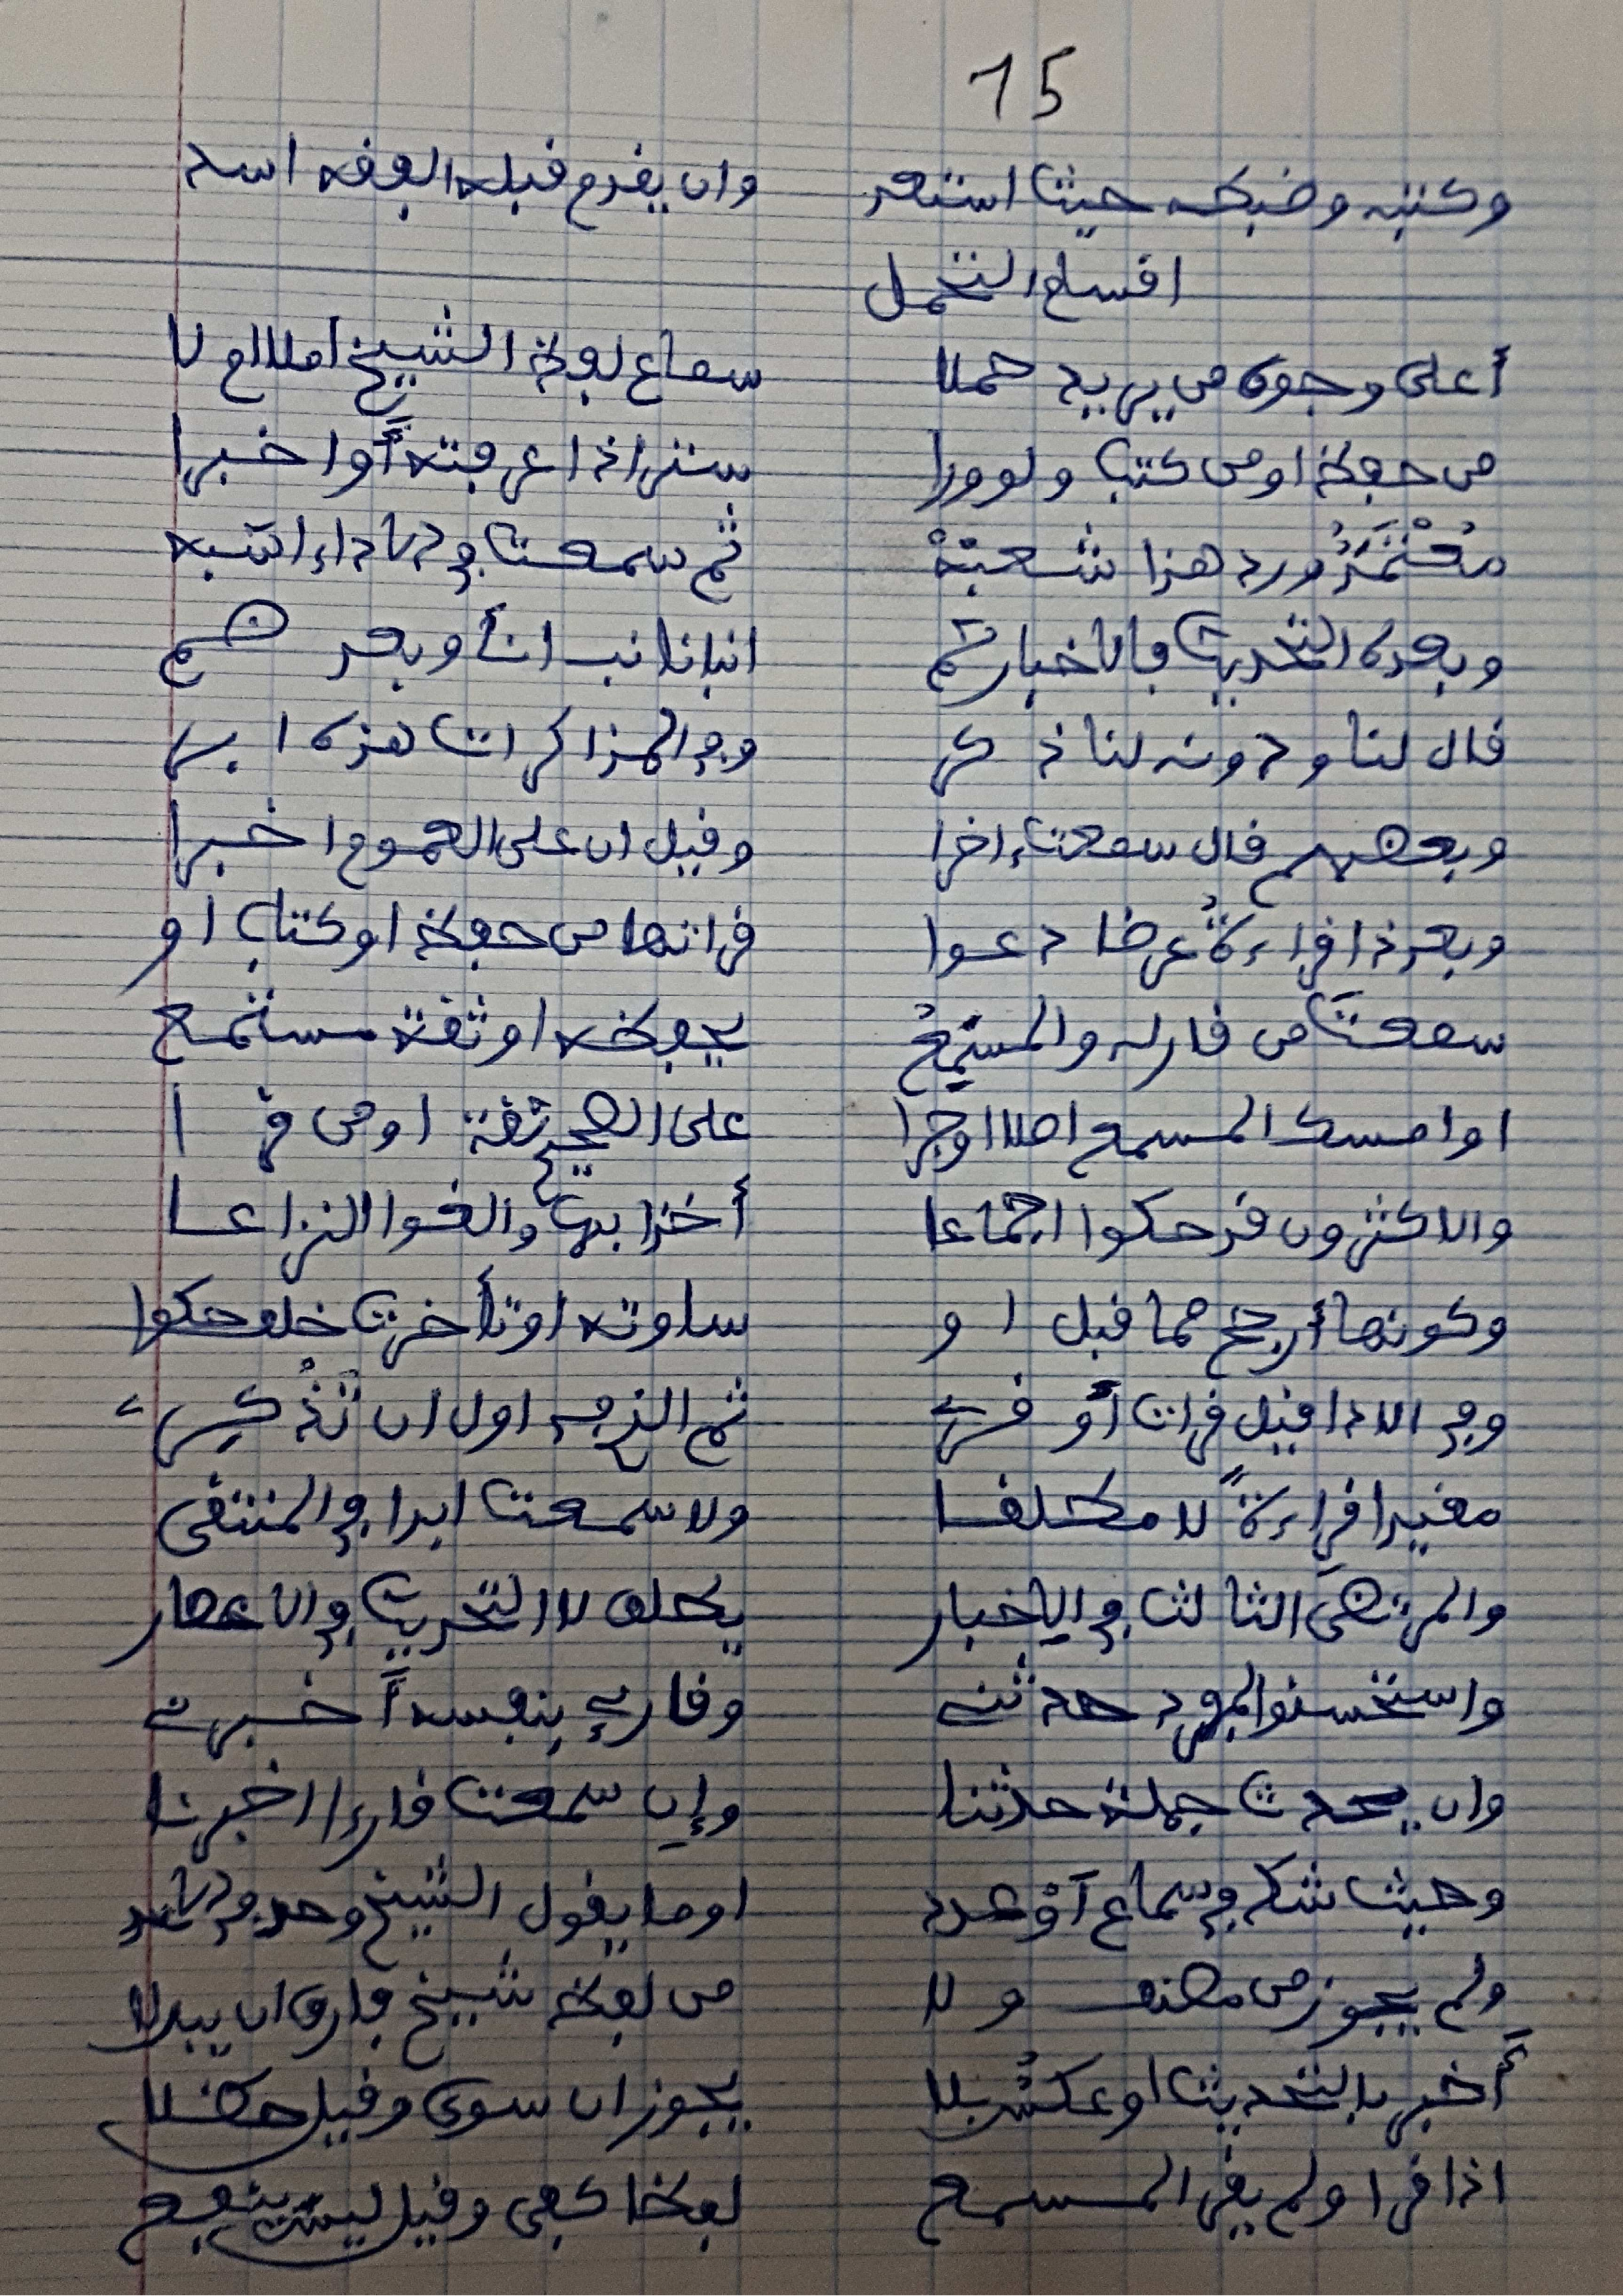 15
وكتبه وضبطه حيث استعد وان يقدم قبله الفقه اسد
اقسام التحمل
أعلى وجوه من يريد حملا سماع لفظ الشيخ املا ام لا
من حفظ او من كتب ولو ورا ستر اذا عرفته أو اخبرا
مُعْتَمَدٌ ورد هذا شعبة ثم سمعت في الاداء اشبه
وبعده التحديث فالاخبار ثم انبانا نبانا وبعد ضم
قال لنا ودونه لنا ذكر وفي المذاكرات هذه ابر
وبعضهم قال سمعت اخرا وقيل ان على العموم اخبرا
وبعد ذا قراءةٌ عرضا دعوا قراتها من حفظ او كتاب او
سمعتَ من قار له والمسمعُ يحفظه او ثقة مستمع
او امسك المسمع اصلا او جرا على الصحيح ثقة او من قرا
والاكثرون قد حكوا اجماعا أخذا بها والغوا النزاعا
وكونها أرجح مما قبل او ساوته او تأخرت خلف حكوا
وفي الادا قيل قرات أو قري ثم الذي في اول ان تذكري
مقيدا قراءةً لا مطلقا ولا سمعت ابدا في المنتقى
والمرتضى الثالث في الاخبار يطلق لا التحديث في الاعصار
واستحسنوا لمفرد حدثني وقارئ بنفسه أخبرني
وان يحدث جملة حدثنا وإن سمعت قارءا اخبرنا
وحيث شك في سماع أو عدد او ما يقول الشيخ وحد في الاسد
ولم يجوز من مصنف ولا من لفظ شيخ فارق ان يبدلا
أخبر بالتحديث او عكسٌ بلا يجوز ان سوى وقيل حظلا
اذا قرا ولم يقر المسمع لفظا كفى وقيل ليس ينفع